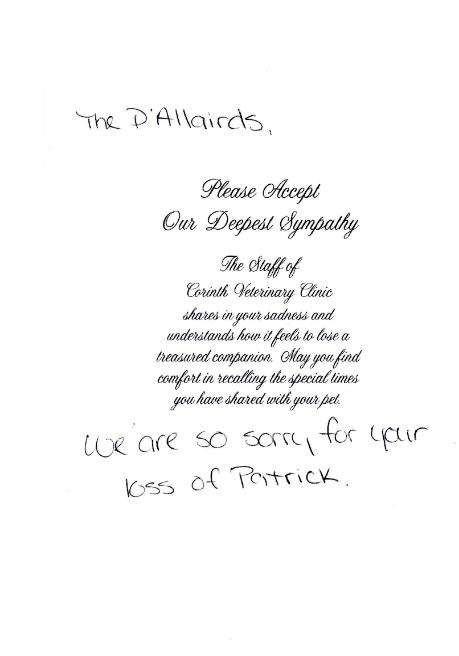 The D'Allairds,
Please Accept
Our Deepest Sympathy
The Staff of
Corinth Veterinary Clinic
shares in your sadness and
understands how it feels to lose a
treasured companion. May you find
comfort in recalling the special times
you have shared with your pet.
We are so sorry for your
loss of Patrick.